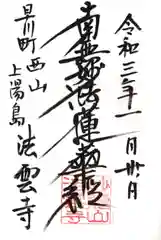 令和三年十一月廿八日
南無妙法蓮華経
早川町西山
上湯島
法雲寺